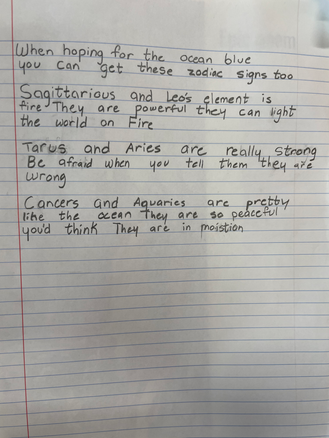 When hoping for the ocean blue
you can get these zodiac signs too
Sagittarious and Leo's element is
fire They are powerful they can light
the world on Fire
Tarus and Aries are really strong
Be afraid when you tell them they are
wrong
Cancers and Aquaries are pretty
like the ocean They are so peaceful
you'd think They are in moistion